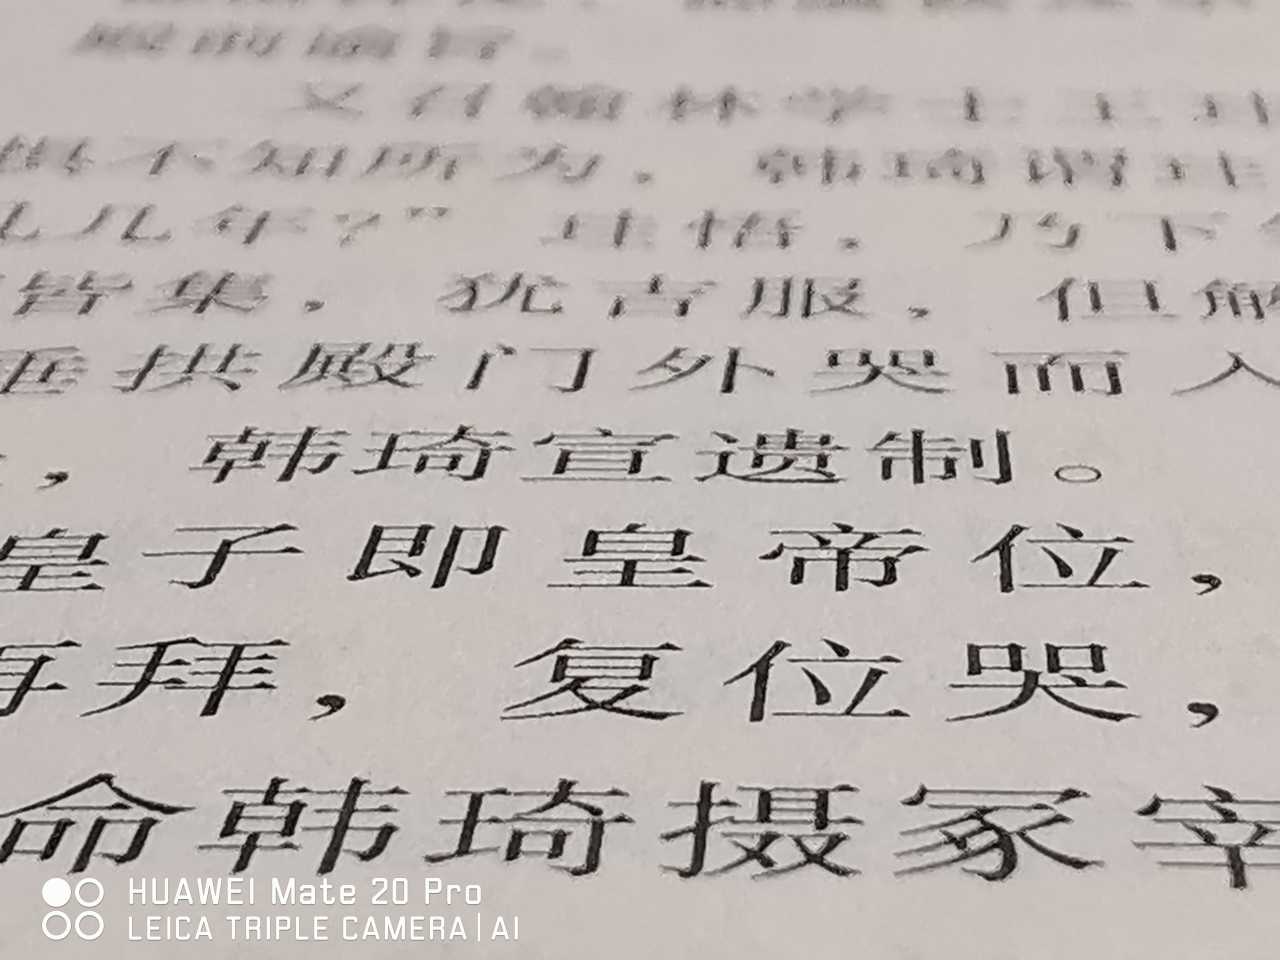 又召翰林学士王珪
惧不知所为，韩琦谓珪
几年？”珪悟，乃下
皆集，犹吉服，但解
垂拱殿门外哭而入
，韩琦宣遗制。
皇子即皇帝位，
再拜，复位哭，
命韩琦摄冢宰
HUAWEI Mate 20 Pro
LEICA TRIPLE CAMERA | AI